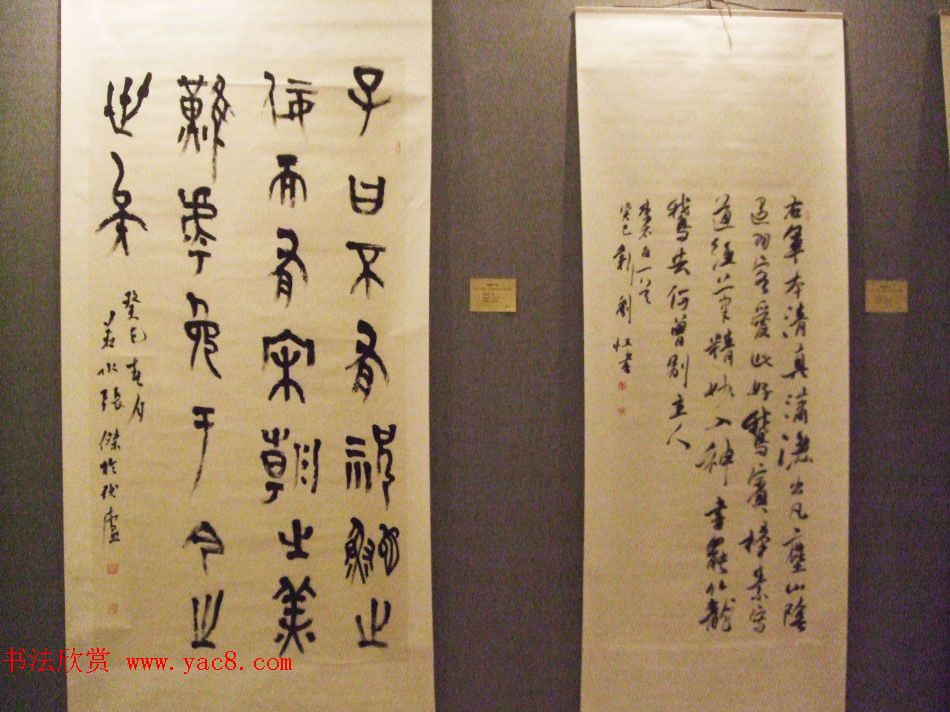 子曰不有祝鮀之
佞而有宋朝之美
難乎免于今之
世矣
癸巳春月
若水張傑於盧
右軍本清真瀟灑出凡塵山陰
過羽客愛此好鵝賓掃素寫
道經筆精妙入神書罷籠
鵝去何曾別主人
李太白一首
癸巳書
书法欣赏 www.yac8.com